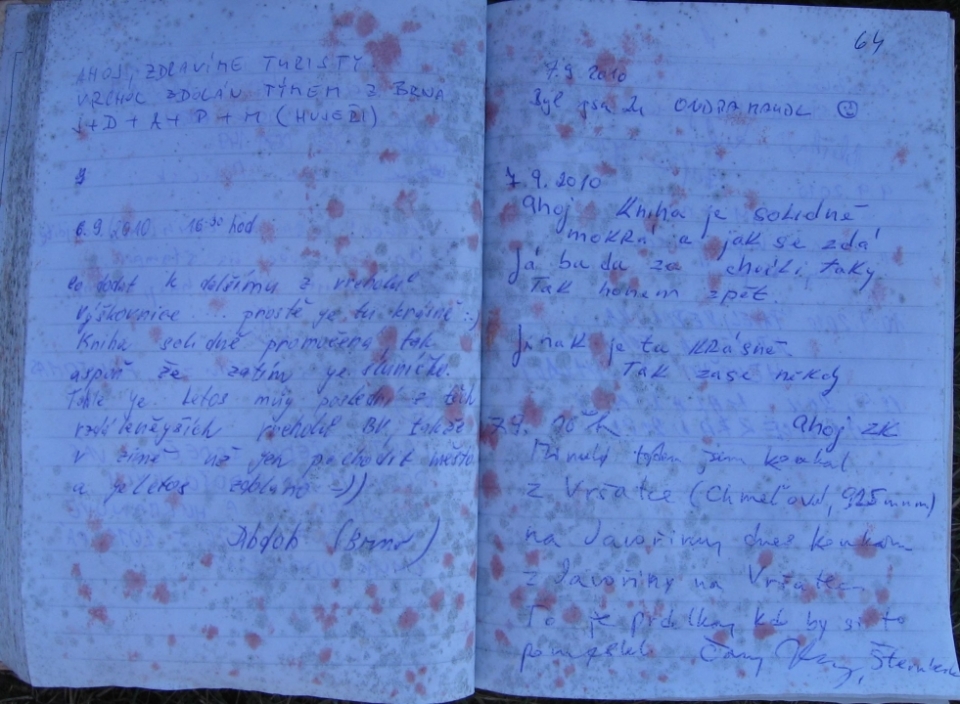 AHOJ, ZDRAVÍME TURISTY
VRCHOL ZDOLÁN TÝMEM Z BRNA
J+D+A+P+M (HUSEŘI)
6.9.2010 16:30 hod
k dalšímu z vrcholů
výškovnice ... prostě je tu krásně :)
Kniha solidně promočena, tak
aspoň že zatím je sluníčko.
Tohle je letos můj poslední z těch
vzdálenějších vrcholů BK, takže
v zimě už jen pochodit město
a je letos =))
(Brno)
64
7.9 2010
Byl jsem zde
7.9.2010
Ahoj Kniha je solidně
mokrá a jak se zdá
Já budu za chvíli taky.
Tak honem zpět.
Jinak je tu KRÁSNĚ.
Tak zase někdy
7.9. 16 h Ahoj ZK
Minulý týden jsem koukal
z Vršatce (Chmeľová, 925 mnm)
na Javořinu, dnes koukám
z Javořiny na Vršatec.
To je prdelka, kdo by si to
pomyslel